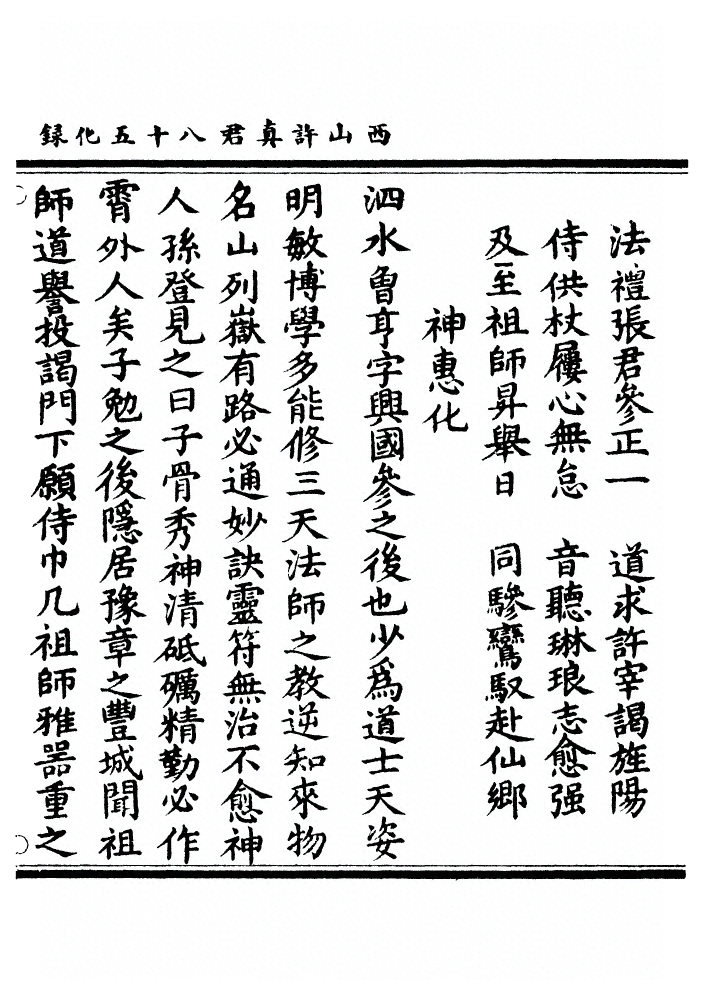 西山許真君八十五化録
法禮張君參正一　道求許宰謁旌陽
侍供杖屨心無怠　音聽琳琅志愈强
及至祖師昇舉日　同驂鸞馭赴仙鄉
神惠化
泗水曾亨字興國參之後也少爲道士天姿
明敏博學多能修三天法師之教逆知來物
名山列嶽有路必通妙訣靈符無治不愈神
人孫登見之曰子骨秀神清砥礪精勤必作
霄外人矣子勉之後隱居豫章之豐城聞祖
師道譽投謁門下願侍巾几祖師雅器重之